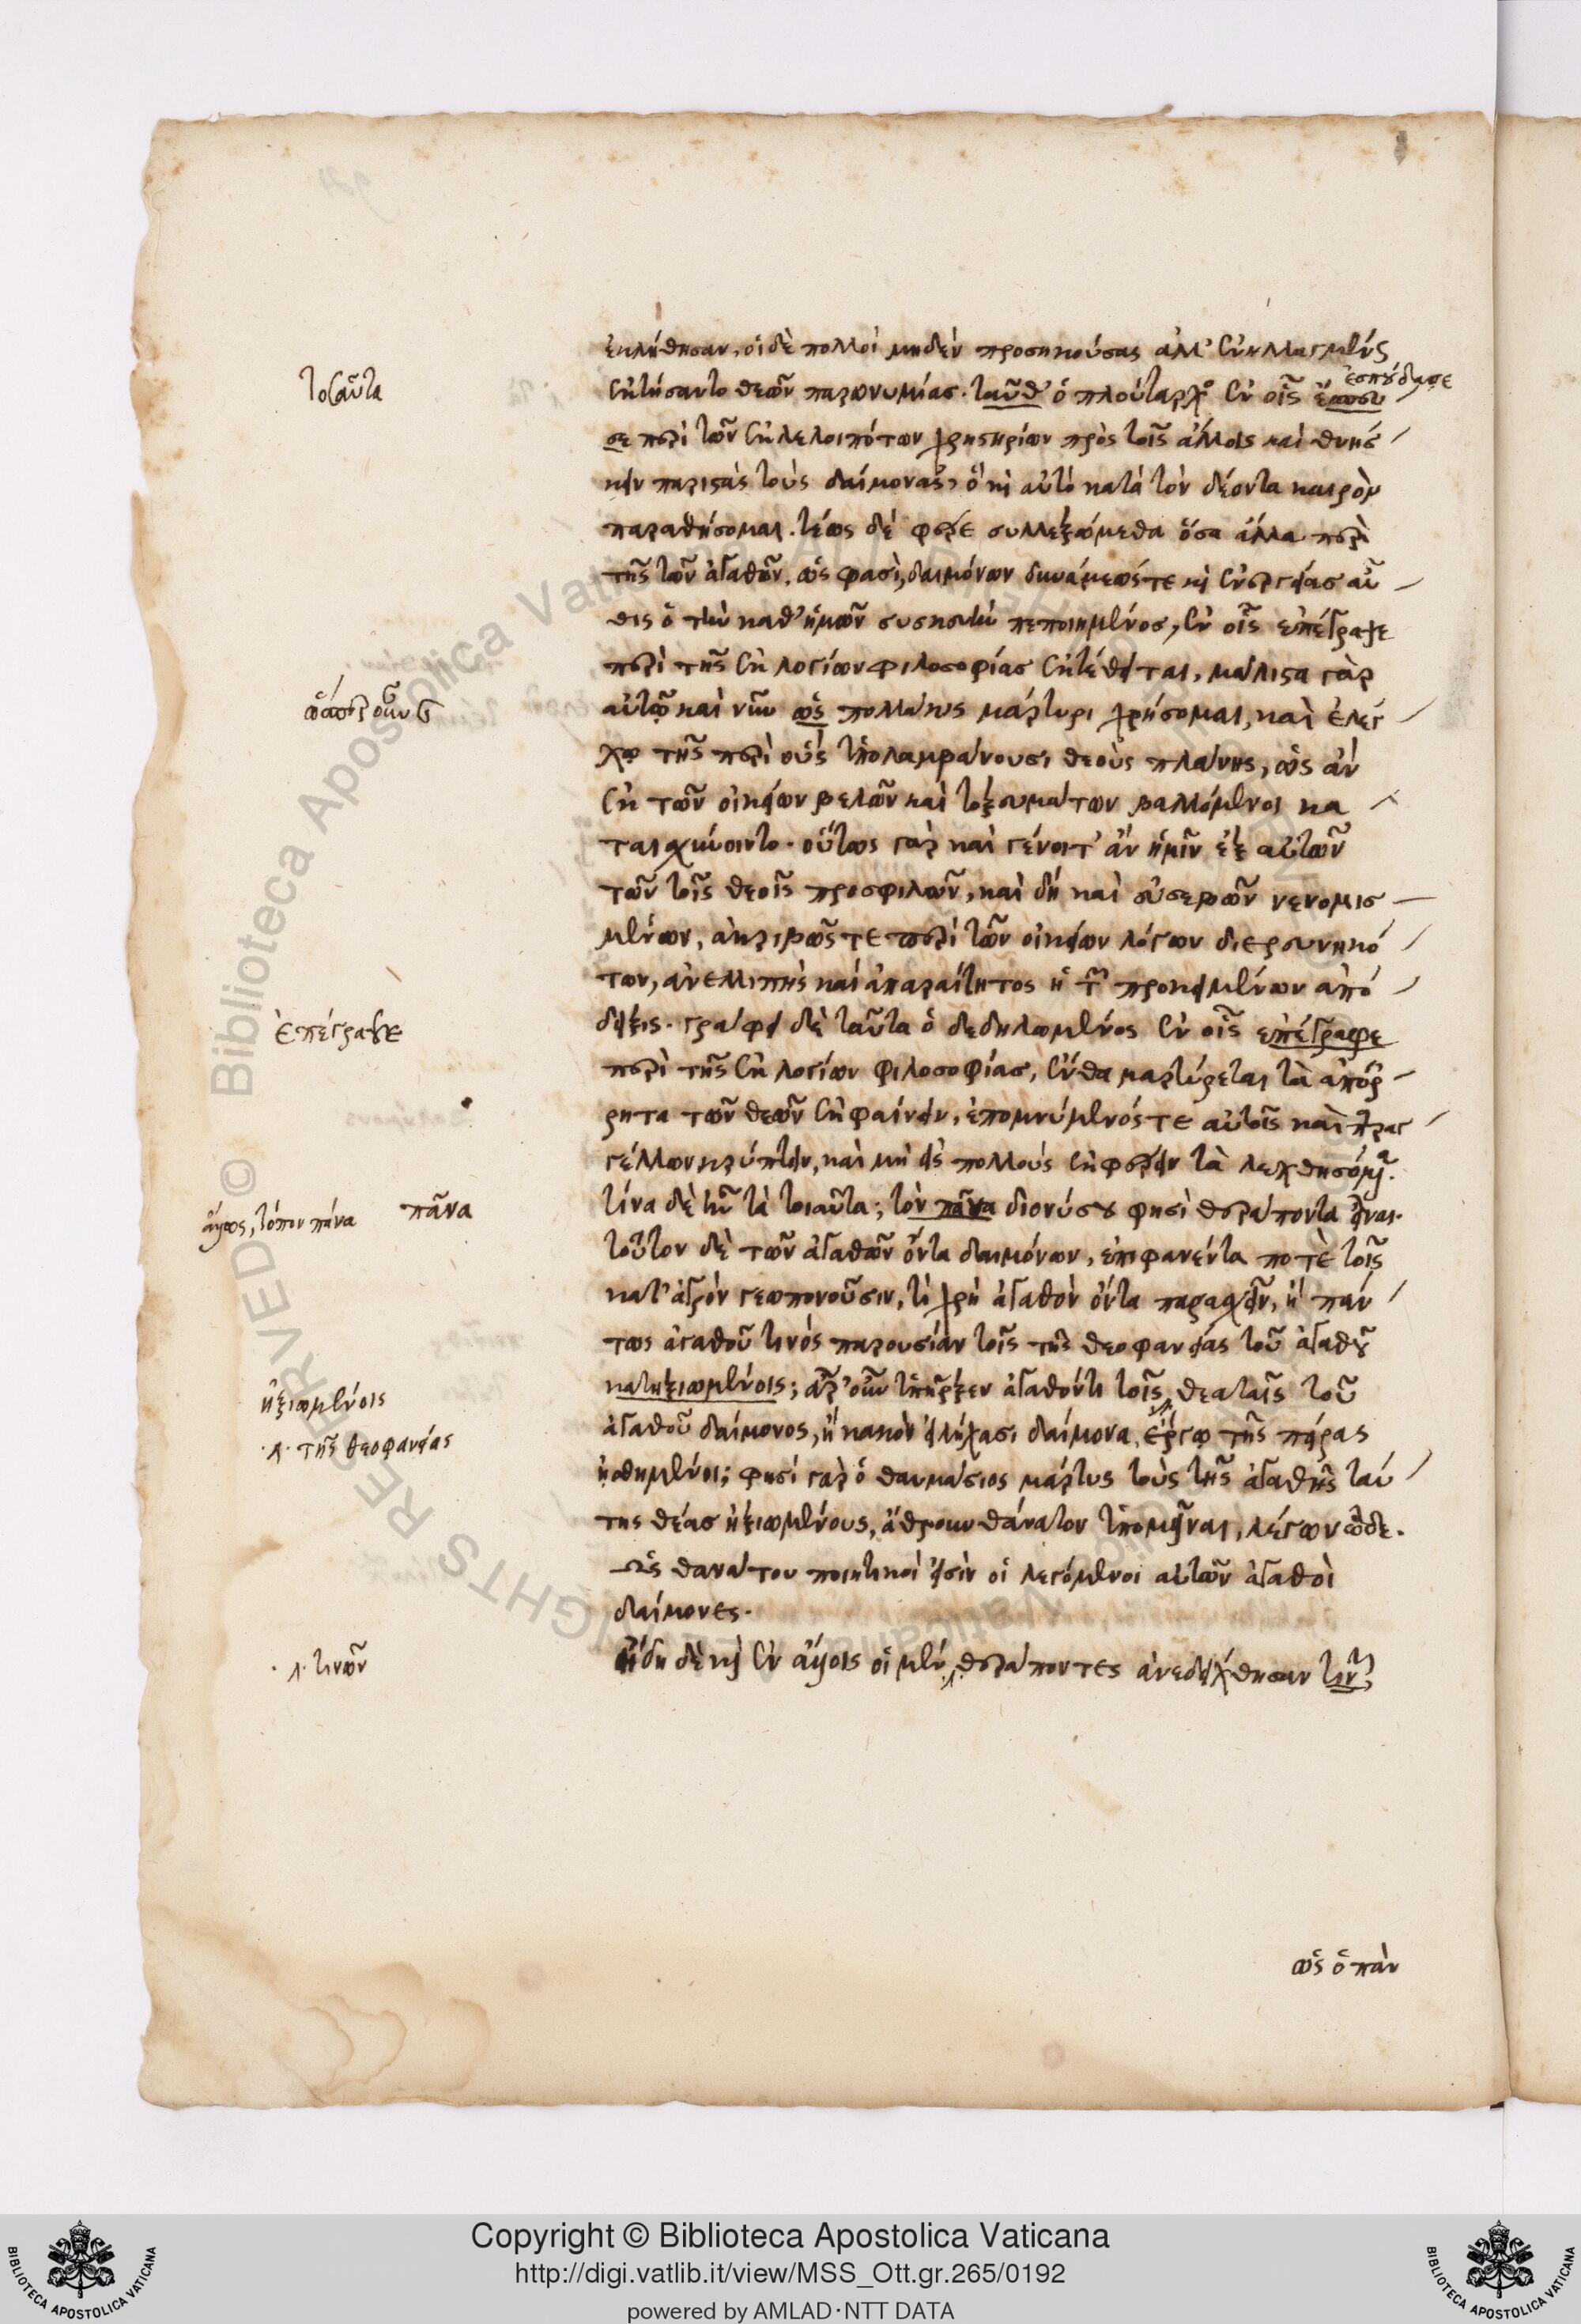 ἐκλήθησαν, οἱ δὲ πολλοὶ μηδὲν προσηκούσας ἀλλ' ἐνηλλαγμένας
τοσαῦτα
ἐκτήσαντο θεῶν παρωνυμίας. ταῦθ' ὁ πλούταρχος ἐν οἷς
ἐσπούδασε
σε περὶ τῶν ἐκλελοιπότων χρηστηρίων πρὸς τοῖς ἄλλοις καὶ θνήσ
κειν παριστὰς τοὺς δαίμονας, ὃ καὶ αὐτὸ κατὰ τὸν δέοντα καιρὸν
παραθήσομαι. τέως δὲ φέρε συλλεξώμεθα ὅσα ἄλλα περὶ
τῆς τῶν ἀγαθῶν, ὥς φασι, δαιμόνων δυνάμεώς τε καὶ ἐνεργείας αὖ
θις ὁ τὴν καθ' ἡμῶν συσκευὴν πεποιημένος, ἐν οἷς ἐπέγραψε
περὶ τῆς ἐκ λογίων φιλοσοφίας ἐκτέθειται, μάλιστα γὰρ
αὐτῷ καὶ νῦν ὡς πολλάκις μάρτυρι χρήσομαι, καὶ ἐλέγ
χῳ τῆς περὶ οὓς ὑπολαμβάνουσι θεοὺς πλάνης, ὡς ἂν
ἐκ τῶν οἰκείων βελῶν καὶ τοξευμάτων βαλλόμενοι κα
ταισχύνοιντο. οὕτως γὰρ καὶ γένοιτ' ἂν ἡμῖν ἐξ αὐτῶν
τῶν τοῖς θεοῖς προσφιλῶν, καὶ δὴ καὶ εὐσεβῶν νενομισ
μένων, ἀκριβῶς τε περὶ τῶν οἰκείων λόγων διερευνηκό
των, ἀνελλιπὴς καὶ ἀπαραίτητος ἡ τῶν προκειμένων ἀπό
ἐπέγραψε
δειξις. γράφει δὲ ταῦτα ὁ δεδηλωμένος ἐν οἷς ἐπέγραφε
περὶ τῆς ἐκ λογίων φιλοσοφίας, ἔνθα μαρτύρεται τὰ ἀπόρ
ρητα τῶν θεῶν ἐκφαίνειν, ἐπομνύμενός τε αὐτοῖς καὶ παραγ
γέλλων κρύπτειν, καὶ μὴ εἰς πολλοὺς ἐκφέρειν τὰ λεχθησόμενα.
τόπον πάνα πᾶνα
τίνα δὲ ἦν τὰ τοιαῦτα; τὸν πᾶνα διονύσου φησὶ θεράποντα εἶναι.
τοῦτον δὲ τῶν ἀγαθῶν ὄντα δαιμόνων, ἐπιφανέντα ποτὲ τοῖς
κατ' ἀγρὸν γεωπονοῦσιν, τί χρὴ ἀγαθὸν ὄντα παρασχεῖν, ἢ πάν
τως ἀγαθοῦ τινὸς παρουσίαν τοῖς τῆς θεοφανείας τοῦ ἀγαθοῦ
ἠξιωμένοις
κατηξιωμένοις; ἆρ' οὖν ὑπῆρξεν ἀγαθόν τι τοῖς θεαταῖς τοῦ
λ. τῆς θεοφανείας
ἀγαθοῦ δαίμονος, ἢ κακὸν εἰλήχασι δαίμονα, ἔργῳ τῆς πείρας
ᾐσθημένοι; φησὶ γὰρ ὁ θαυμάσιος μάρτυς τοὺς τῆς ἀγαθῆς ταύ
της θέας ἠξιωμένους, ἄθρουν θάνατον ὑπομεῖναι, λέγων ὧδε.
Ὡς θανάτου ποιητικοί εἰσιν οἱ λεγόμενοι αὐτῶν ἀγαθοὶ
δαίμονες.
λ. τινῶν
ἤδη δὲ καὶ ἐν ἄλλοις οἱ μὲν θεράποντες ἀνεδείχθησαν
ὡς ὁ πὰν
Copyright © Biblioteca Apostolica Vaticana
http://digi.vatlib.it/view/MSS_Ott.gr.265/0192
powered by AMLAD·NTT DATA